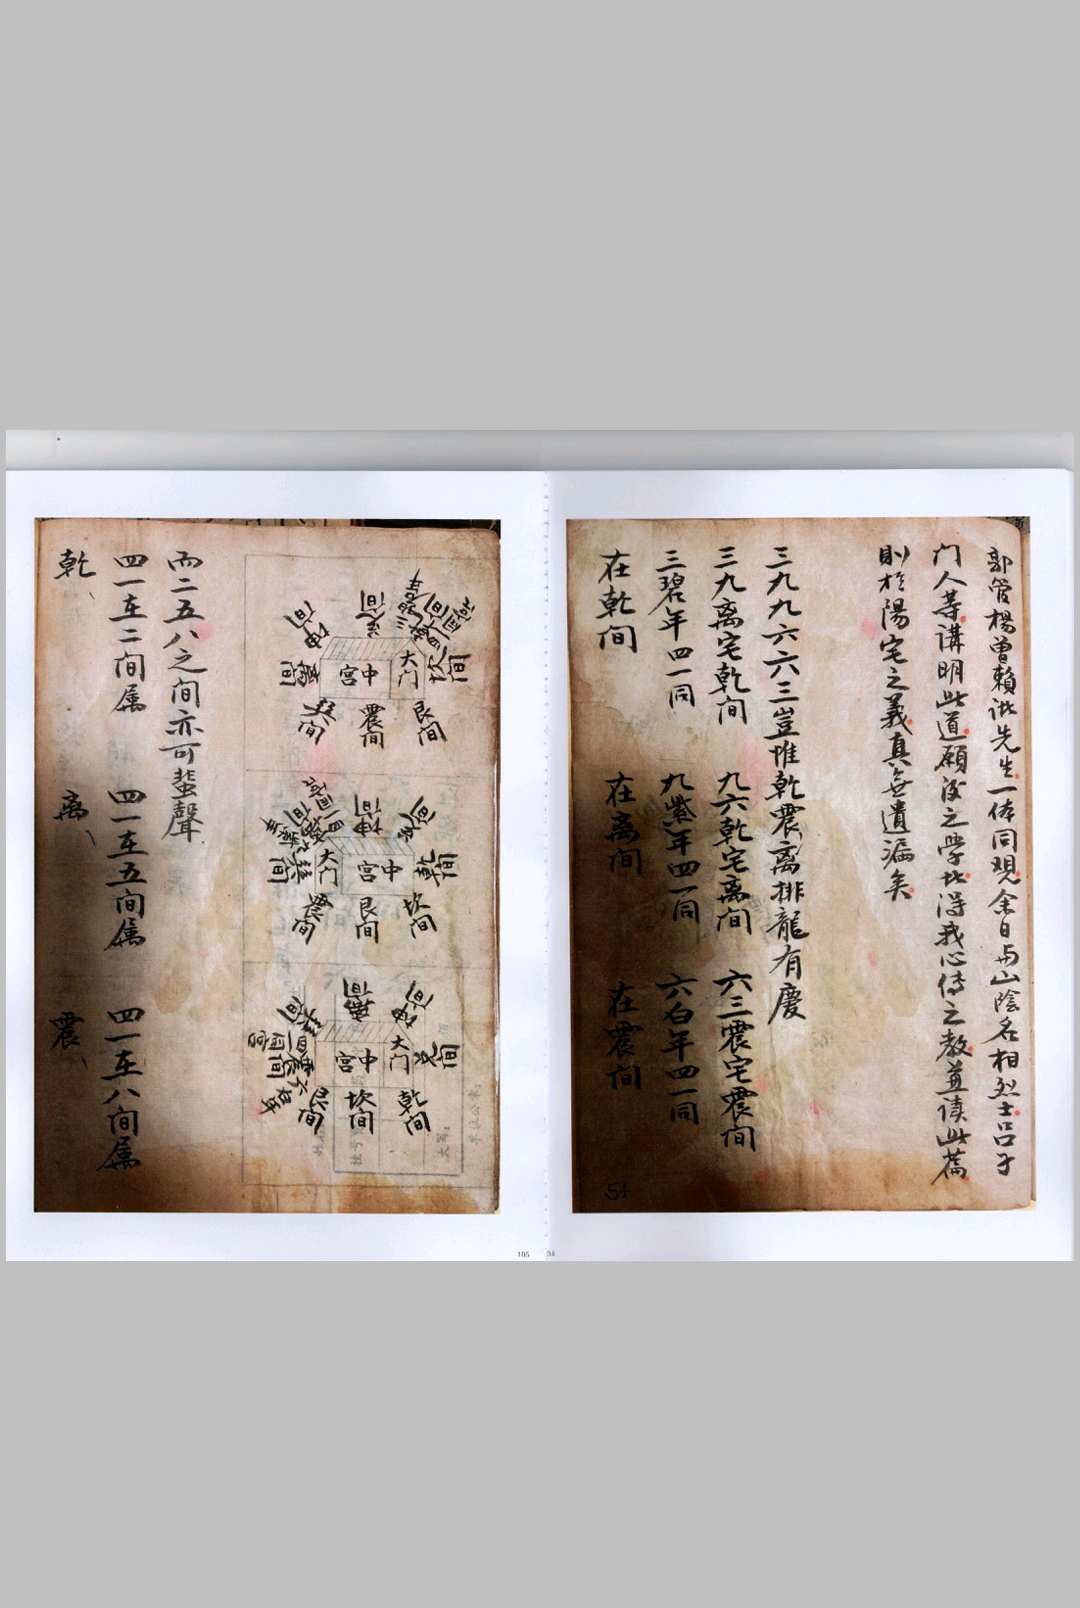 郭管楊曾賴批先生一体同观余日与山陰名相烈士吕子
门人等講明此道愿後之学此得我心传之教並读此篇
則於陽宅之義真無遺漏矣
三九九六六三豈惟乾震离排龍有慶
三九离宅乾间 九六乾宅离间 六三震宅震间
三碧年四一同 九紫年四一同 六白年四一同
在乾间 在离间 在震间
51
大门
中宫
坎间
艮间
震间
巽间
离间
坤间
兑间
大门
中宫
乾间
坎间
艮间
震间
坤间
兑间
大门
中宫
兑间
乾间
坎间
艮间
离间
而二五八之间亦可蜚聲
四一在二间属 四一在五间属 四一在八间属
乾、 离、 震、
105